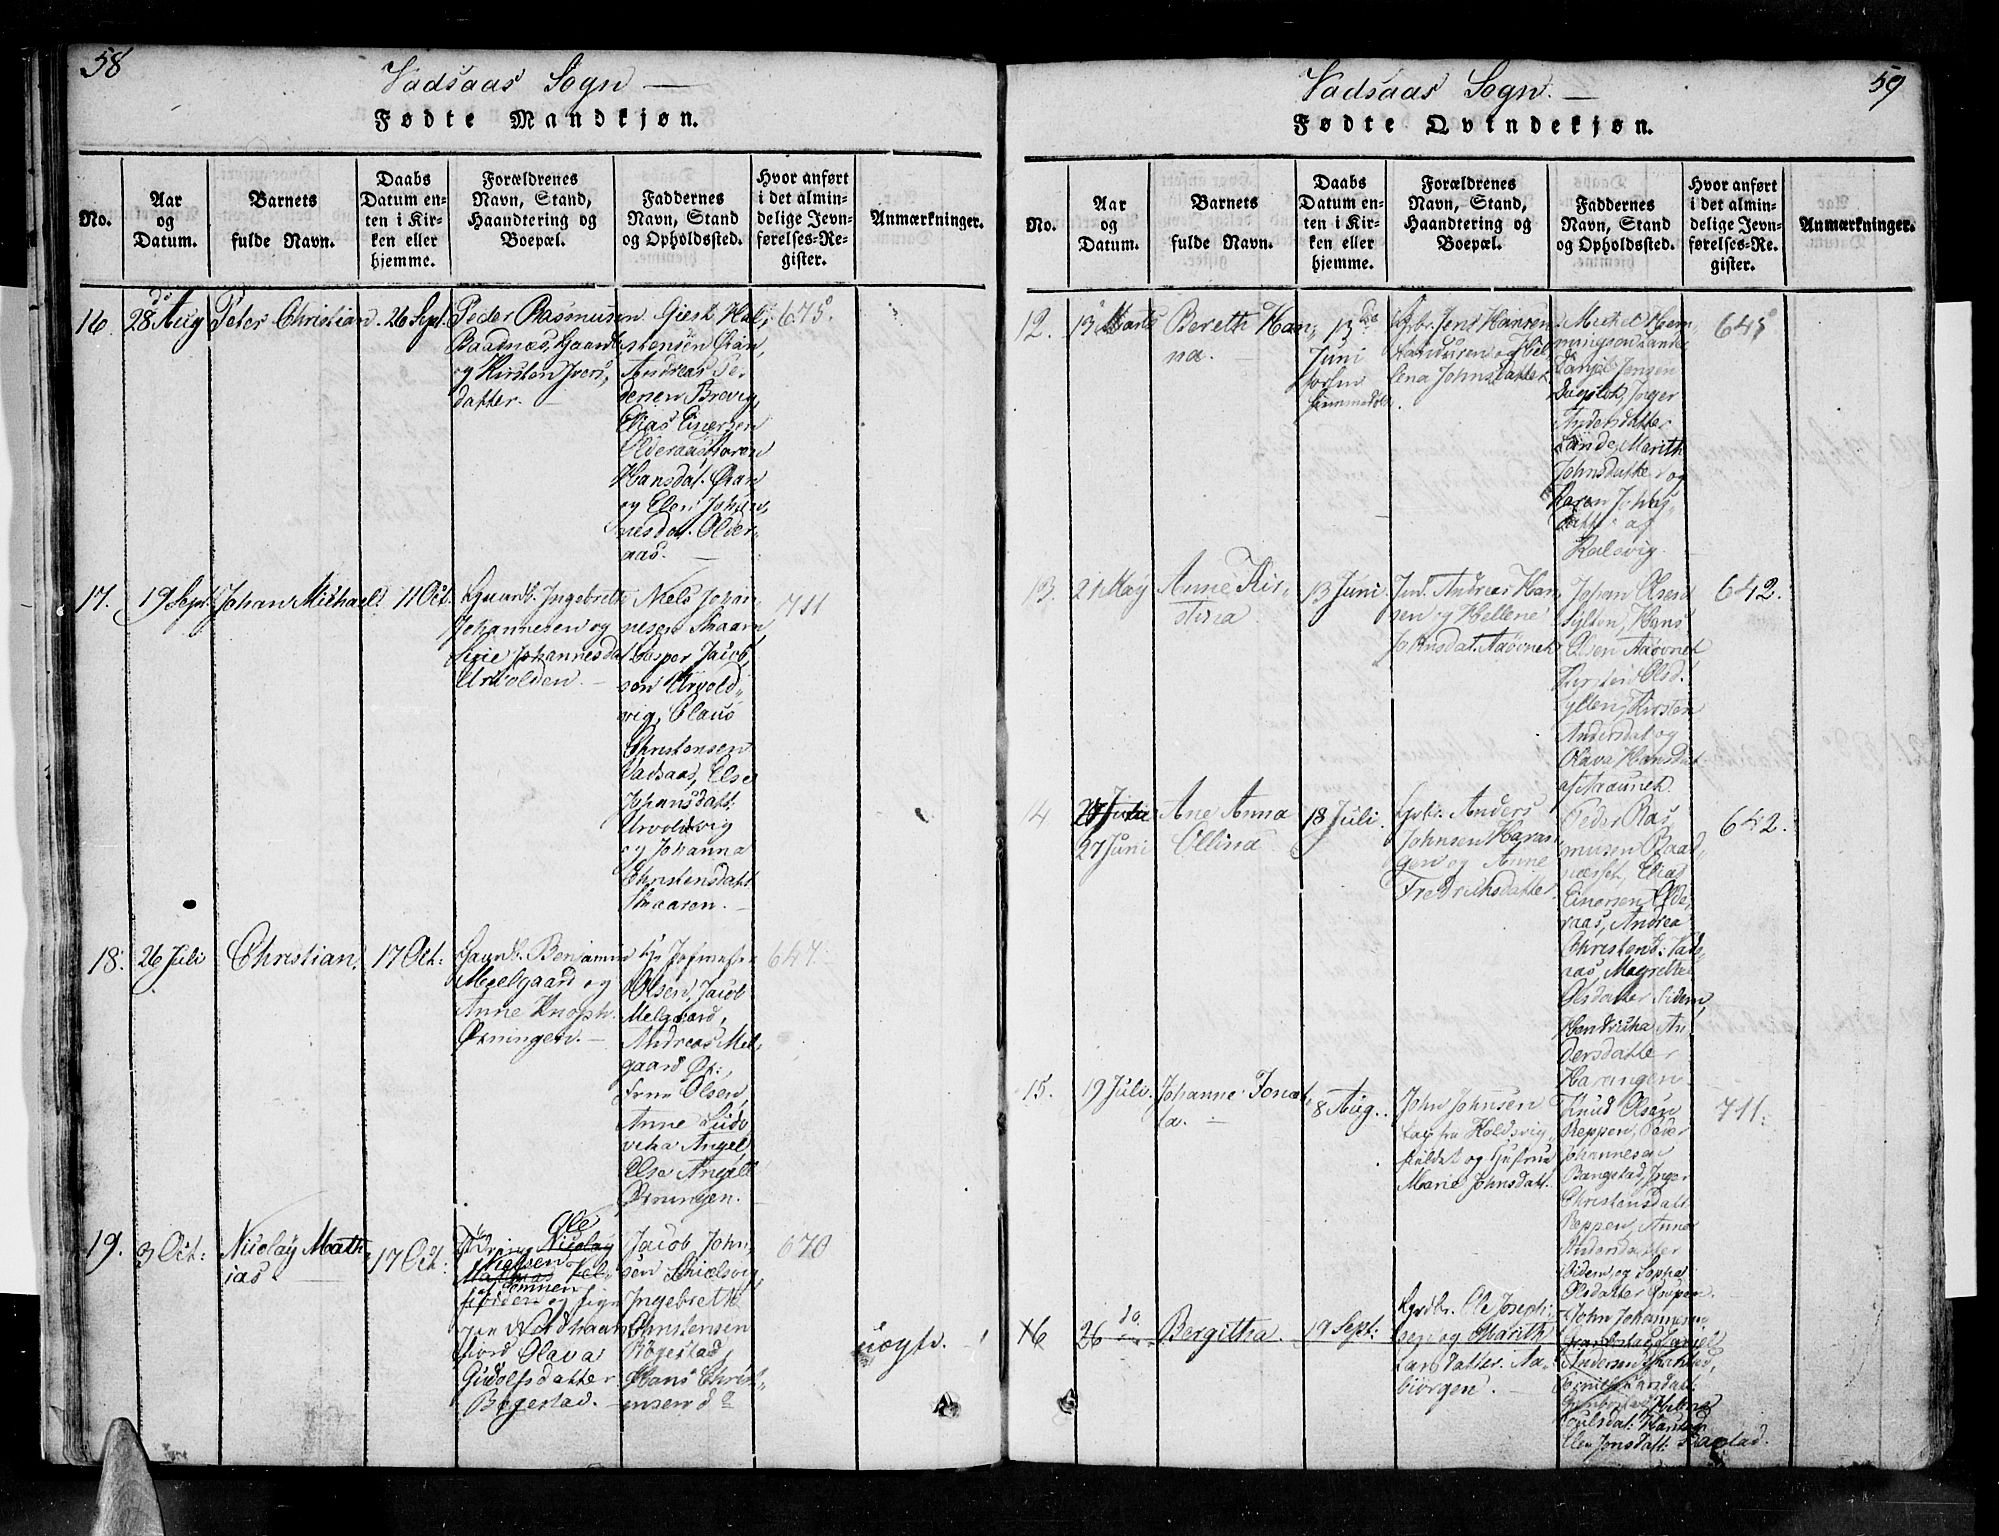 58
Vadsaas Sogn
Fødte Mandkjøn.
No.
Aar
og
Datum.
Barnets
fulde Navn.
Daabs
Datum en-
ten i Kir-
ken eller
hjemme.
Forældrenes
Navn, Stand,
Haandtering og
Boepæl.
Faddernes
Navn, Stand
og Opholdssted.
Hvor anført
i det almin-
delige Jevn-
førelses-Re-
gister.
Anmærkninger.
16.
28 Aug
Peter Christian.
26 Sept.
Peder Rasmusen
Baadnæs, Gaardb
og Kirsten Ivers,
datter.
Giert Hal,
stensen Øran,
Andreas Pe-
dersen Brevig,
Elias Einersen
Olderaas, Karen
Hansdat. Øran
og Elen Johan,
nesdat. Older-
aas.
675.
17.
19 Sept.
Johan Michael
11 Oct.
Gaardb. Ingebreth
Johannesen og
Johannesdat
Urvolden.
Niels Johan-
nesen Skaarn
Casper Jacob,
sen Urvold-
vig, Claus
Christensen
Vadsaas, Else
Johansdatt.
Urvoldvig
og Johanna
Christensdatt
Skaaren.
711
18.
26 Juli
Christian,
17 Oct:
Gaardb. Benjamin
Meelgaard og
Anne Knoph
Ørningen.
Olsen, Jacob
Melgaard,
Andreas Mel-
gaard
Olsen,
Anne Ludo
vicha Angel,
Else Angell
Ørningen.
647.
19.
3 Oct:
Nicolay Math
ias
17 Oct:
Ole
Nicolay
Nielsen
Mathias
Olava
Gudolfsdatter
Bogestad.
Jacob John-
sen Skielsvig,
Ingebreth
Christensen
Bogestad,
Hans Christ-
ensen do
670
uægte.
59
Vadsaas Sogn.
Fødte Qvindekjøn.
No.
Aar
og
Datum.
Barnets
fulde Navn.
Daabs
Datum en-
ten i Kir-
ken eller
hjemme.
Forældrenes
Navn, Stand,
Haandtering og
Boepæl.
Faddernes
Navn, Stand
og Opholdssted.
Hvor anført
i det almin-
delige Jevn-
førelses-Re-
gister.
Anmærkninger.
12.
13 Marts
Bereth Han,
na.
13 de
Juni
Jens Hansen
og
lena Johnsdatter
Michel Hem-
mingsen Sande
Daniel Jensen
Inger
Andersdatter
Sande, Marith
Johnsdatter og
Karen Johns-
datter af
Kalsvig.
645
13.
21 May
Anne Kir-
stina
13 Juni
Ind. Andreas Han-
sen og Hellene
Johnsdat. Aaøvnet
Johan Olsen
Sylten, Hans
Olsen Aaøvnet
Kirsten Olsd.
Sylten, Kirsten
Andersdat og
Olava Hansdat
af Aaøunet.
642.
14
27 Juni
Ane Anna
Ollina
18 Juli.
Anders
Johnsen Haran
gen og Anne
Fredrichsdatter
Peder Ras,
musen Baad,
næsset, Elias
Einersen Olde-
raas, Andrea
Christensd: Vads
aas, Magrethe
Olsdatter Eidem,
Hendricha An
dersdatter
Haringen
642.
15.
19 Juli.
Johanne Jonat,
ta.
8 Aug.
John Johnsen
fra Holdsvig
og Gjertrud
Marie Johnsdatt.
Knud Olsen
Reppen, Peder
Johannesen
Bangstad, Inger
Christensdatt
Reppen, Anne
Andersdatter
Eidem, og Sophia
Olsdatter
711.
16
26 do.
Bergitha.
19 Sept:
Ole Joseph:
og Marith
Larsdatter. Aa-
biørgen.
John Johannesen
Daniel
Andersen
Helena
Poulsdat.
Elen Jonsdatt: